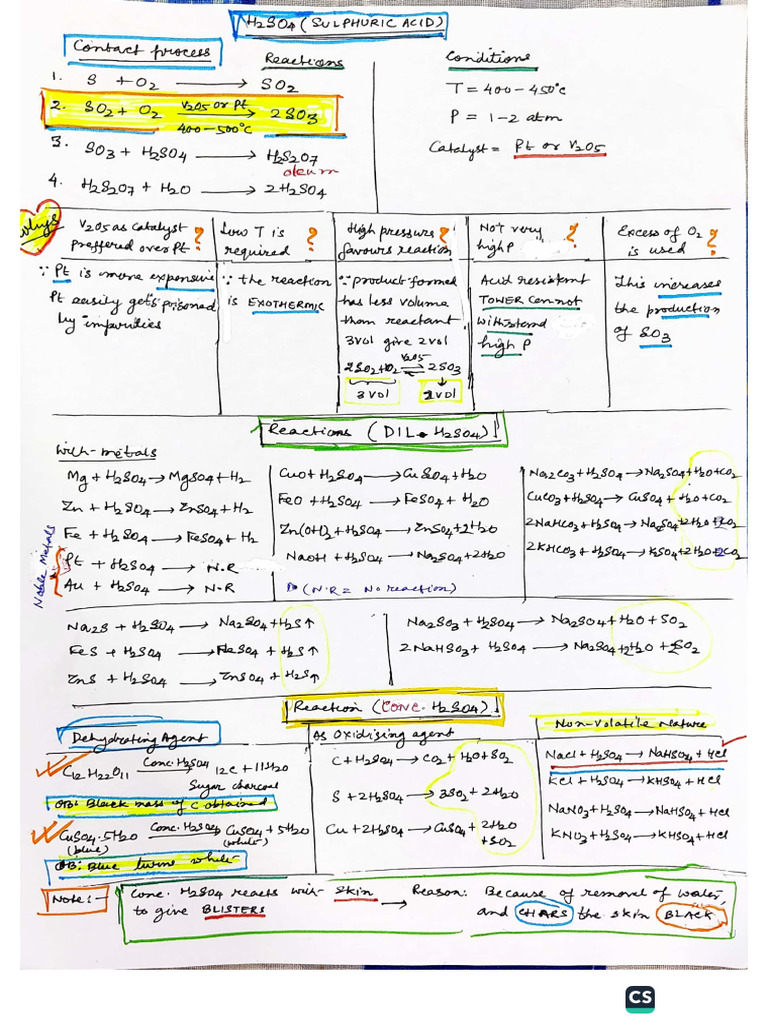 H2SO4 (SULPHURIC ACID)
Contact process
Reactions
1. S + O2 → SO2
2. SO2 + O2 V2O5 or Pt → 400-500°C 2SO3
3. SO3 + H2SO4 → H2S2O7
oleum
4. H2S2O7 + H2O → 2H2SO4
Conditions
T = 400-450°C
P = 1-2 atm
Catalyst = Pt or V2O5
Whys
V2O5 as catalyst
preffered over Pt ?
∵ Pt is more expensive
Pt easily gets poisoned
by impurities
Low T is
required ?
∵ the reaction
is EXOTHERMIC
High pressure
favours reaction ?
∵ product formed
has less volume
than reactant
3vol give 2vol
2SO2+O2 V2O5 ⇌ 2SO3
3vol 2vol
Not very
high P ?
Acid resistant
TOWER cannot
withstand
high P
Excess of O2
is used ?
This increases
the production
of SO3
Reactions (DIL. H2SO4)
With-metals
Mg + H2SO4 → MgSO4 + H2
Zn + H2SO4 → ZnSO4 + H2
Fe + H2SO4 → FeSO4 + H2
Pt + H2SO4 → N.R
Au + H2SO4 → N.R
Noble Metals
CuO + H2SO4 → CuSO4 + H2O
FeO + H2SO4 → FeSO4 + H2O
Zn(OH)2 + H2SO4 → ZnSO4 + 2H2O
NaOH + H2SO4 → Na2SO4 + 2H2O
(N.R = No reaction)
Na2CO3 + H2SO4 → Na2SO4 + H2O + CO2
CuCO3 + H2SO4 → CuSO4 + H2O + CO2
2NaHCO3 + H2SO4 → Na2SO4 + 2H2O + 2CO2
2KHCO3 + H2SO4 → K2SO4 + 2H2O + 2CO2
Na2S + H2SO4 → Na2SO4 + H2S↑
FeS + H2SO4 → FeSO4 + H2S↑
ZnS + H2SO4 → ZnSO4 + H2S↑
Na2SO3 + H2SO4 → Na2SO4 + H2O + SO2
2NaHSO3 + H2SO4 → Na2SO4 + 2H2O + 2SO2
Reaction (Conc. H2SO4)
Dehydrating Agent
C12H22O11 Conc. H2SO4 → 12C + 11H2O
Sugar charcoal
OB: Black mass of C obtained
CuSO4.5H2O Conc. H2SO4 → CuSO4 + 5H2O
(blue) (white)
OB: Blue turns white
As Oxidising agent
C + H2SO4 → CO2 + H2O + SO2
S + 2H2SO4 → 3SO2 + 2H2O
Cu + 2H2SO4 → CuSO4 + 2H2O
+ SO2
Non-Volatile Nature
NaCl + H2SO4 → NaHSO4 + HCl
KCl + H2SO4 → KHSO4 + HCl
NaNO3 + H2SO4 → NaHSO4 + HCl
KNO3 + H2SO4 → KHSO4 + HCl
Note:-
Conc. H2SO4 reacts with skin
to give BLISTERS
→ Reason: Because of removal of water,
and CHARS the skin BLACK
CS